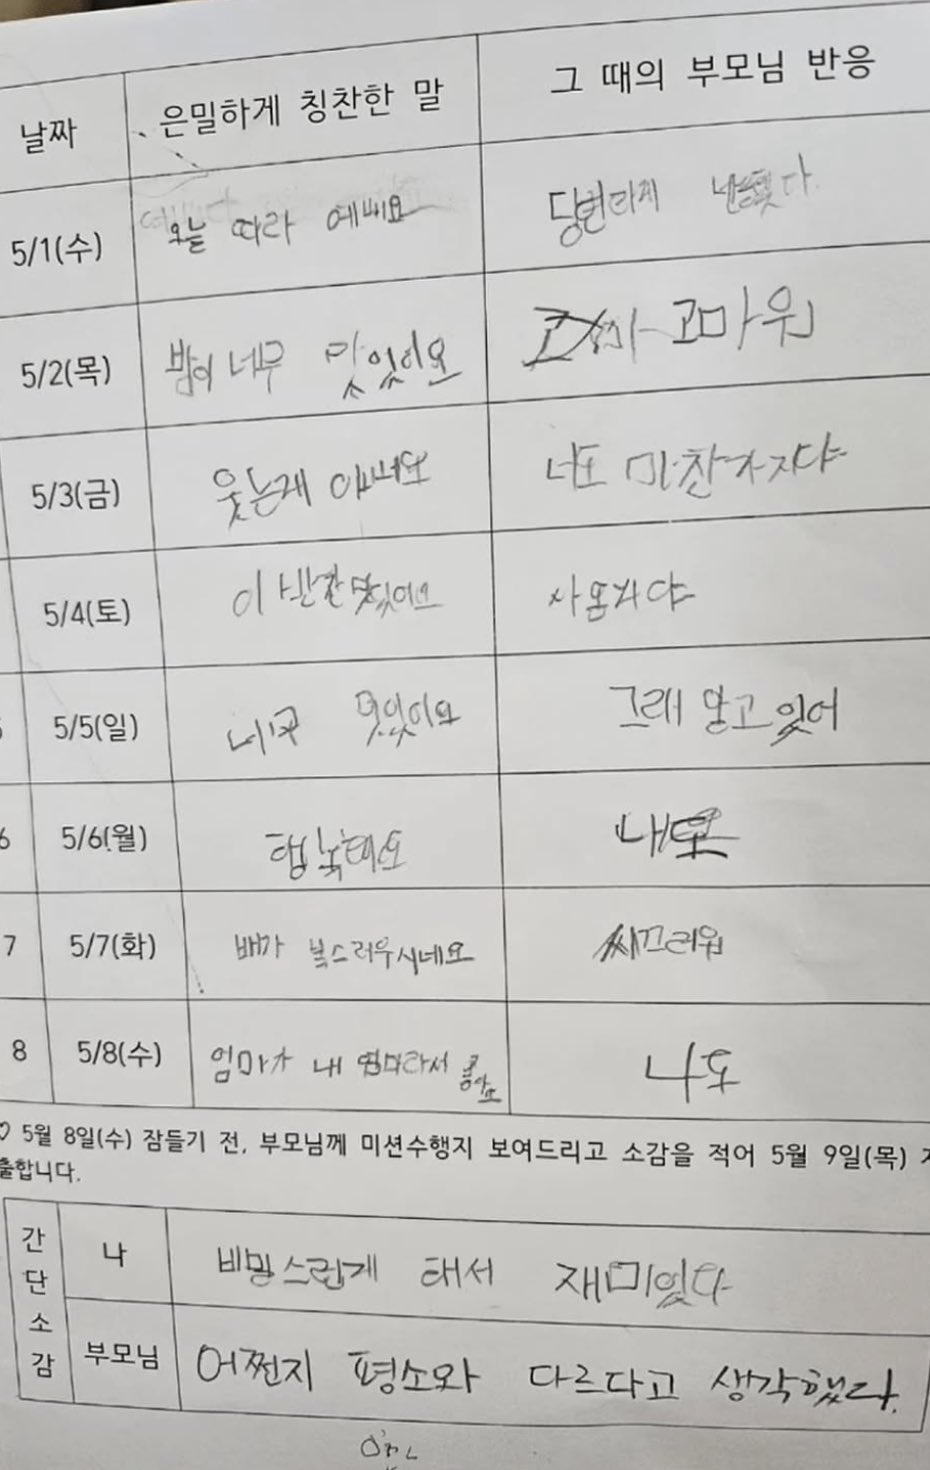 날짜 은밀하게 칭찬한 말 그 때의 부모님 반응
5/1(수) 오늘 따라 에뻐요
5/2(목) 밥이 너무 맛있어요 고마워
5/3(금) 웃는게 너도 마찬가지야
5/4(토) 이 반찬 맛있어요
5/5(일) 너무 멋있어요 그래 알고 있어
6 5/6(월) 행복해요 나도
7 5/7(화) 배가 복스러우시네요 씨끄러워
8 5/8(수) 엄마가 내 엄마라서 좋아요 나도
♡ 5월 8일(수) 잠들기 전, 부모님께 미션수행지 보여드리고 소감을 적어 5월 9일(목)
출합니다.
간단소감 나 비밀스럽게 해서 재미있다
부모님 어쩐지 평소와 다르다고 생각했다.